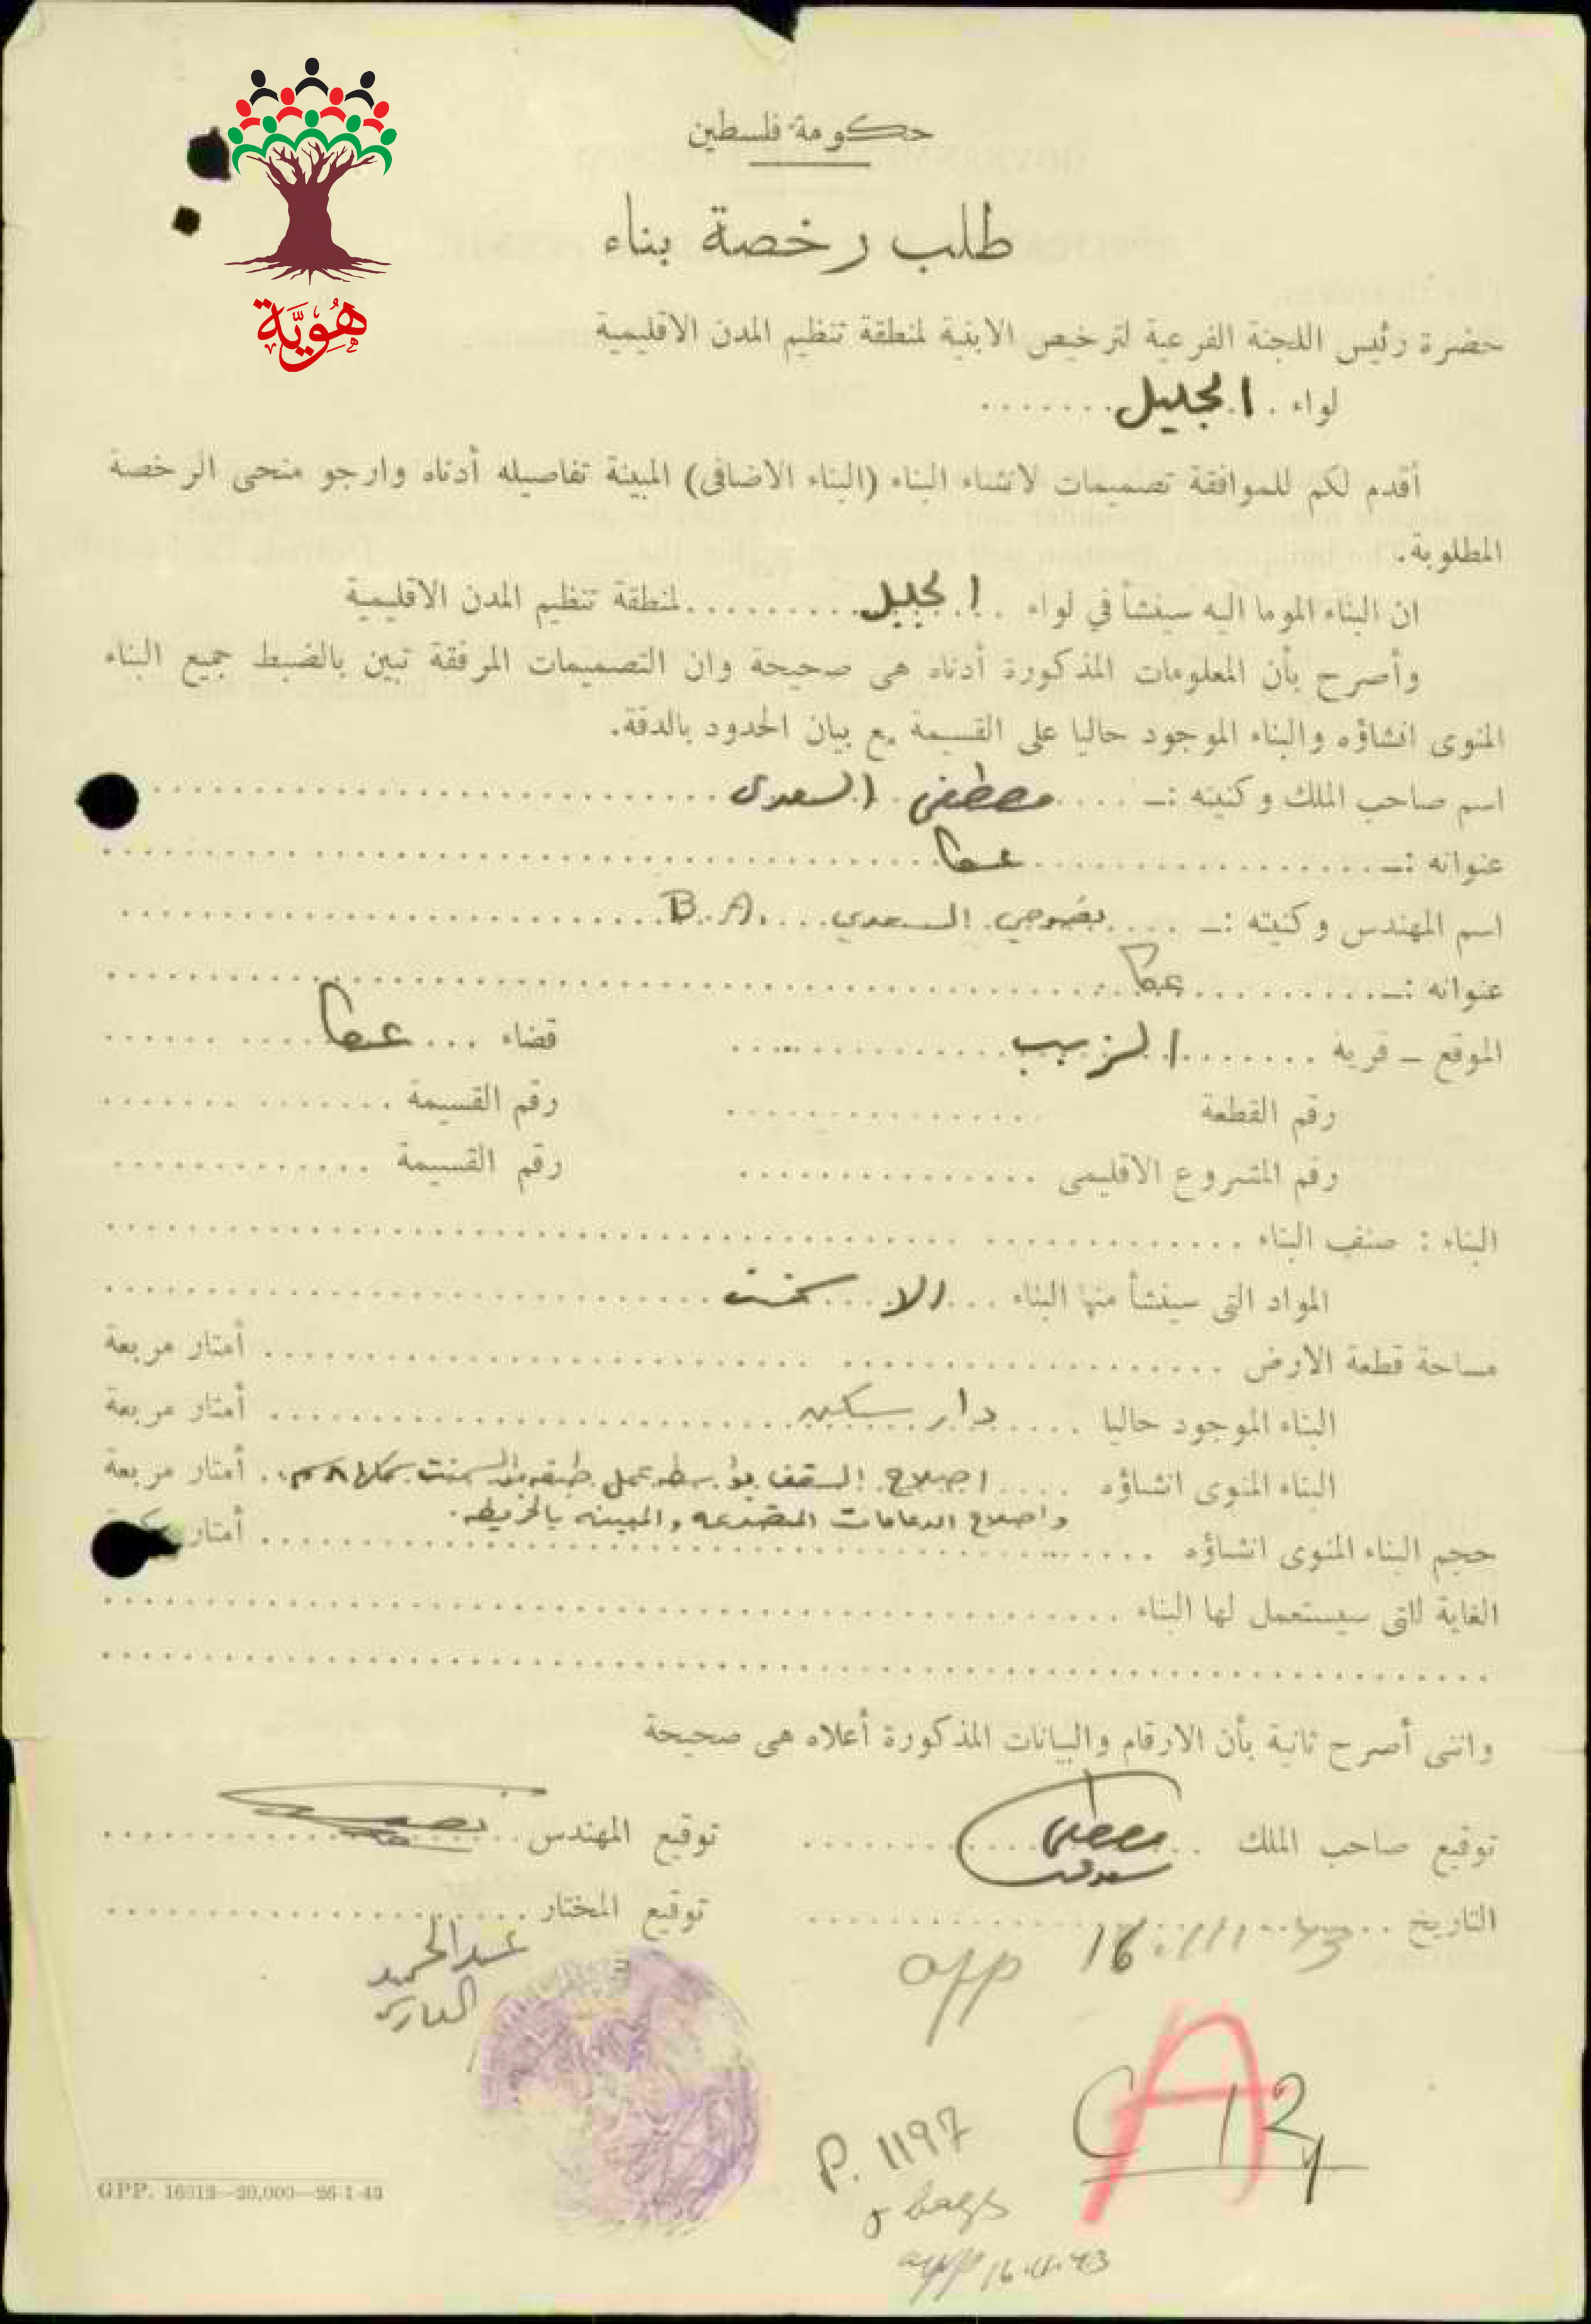 هُوِيَّة
حكومة فلسطين
طلب رخصة بناء
حضرة رئيس اللجنة الفرعية لترخيص الابنية لمنطقة تنظيم المدن الاقليمية
لواء . الجليل ........
أقدم لكم للموافقة تصميمات لانشاء البناء (البناء الاضافى) المبينة تفاصيله أدناه وارجو منحى الرخصة
المطلوبة.
ان البناء الموما اليه سينشأ في لواء .. الجليل ......... لمنطقة تنظيم المدن الاقليمية
وأصرح بأن المعلومات المذكورة أدناه هى صحيحة وان التصميمات المرفقة تبين بالضبط جميع البناء
المنوى انشاؤه والبناء الموجود حاليا على القسيمة مع بيان الحدود بالدقة.
اسم صاحب الملك وكنيته :— .... مصطفى السعدى ........
عنوانه :— ........ عكا ........
اسم المهندس وكنيته :— .... السعدي .... B.A. ........
عنوانه :— ........ عكا ........
الموقع — قرية ....... الزيب ........ قضاء ... عكا ........
رقم القطعة ........ رقم القسيمة ........
رقم المشروع الاقليمى ........ رقم القسيمة ........
البناء : صنف البناء ........
المواد التى سينشأ منها البناء ... الاسمنت ........
مساحة قطعة الارض ........ أمتار مربعة
البناء الموجود حاليا .... دار سكن ........ أمتار مربعة
البناء المنوى انشاؤه .... اصلاح السقف بواسطة عمل طبقة من السمنت بسمك ٨ سم .. أمتار مربعة
واصلاح الدعامات المتصدعه والمبينه بالخريطه.
حجم البناء المنوى انشاؤه ........ أمتار
الغاية للتى سيستعمل لها البناء ........
واننى أصرح ثانية بأن الارقام والبيانات المذكورة أعلاه هى صحيحة
توقيع صاحب الملك .. مصطفى ........ توقيع المهندس ........
التاريخ .. 16.11.43 ........ توقيع المختار ........
عبد الحميد
app
A
C 12
P. 1197
5 bags
app 16.11.43
GPP. 16313—20,000—26-1-43